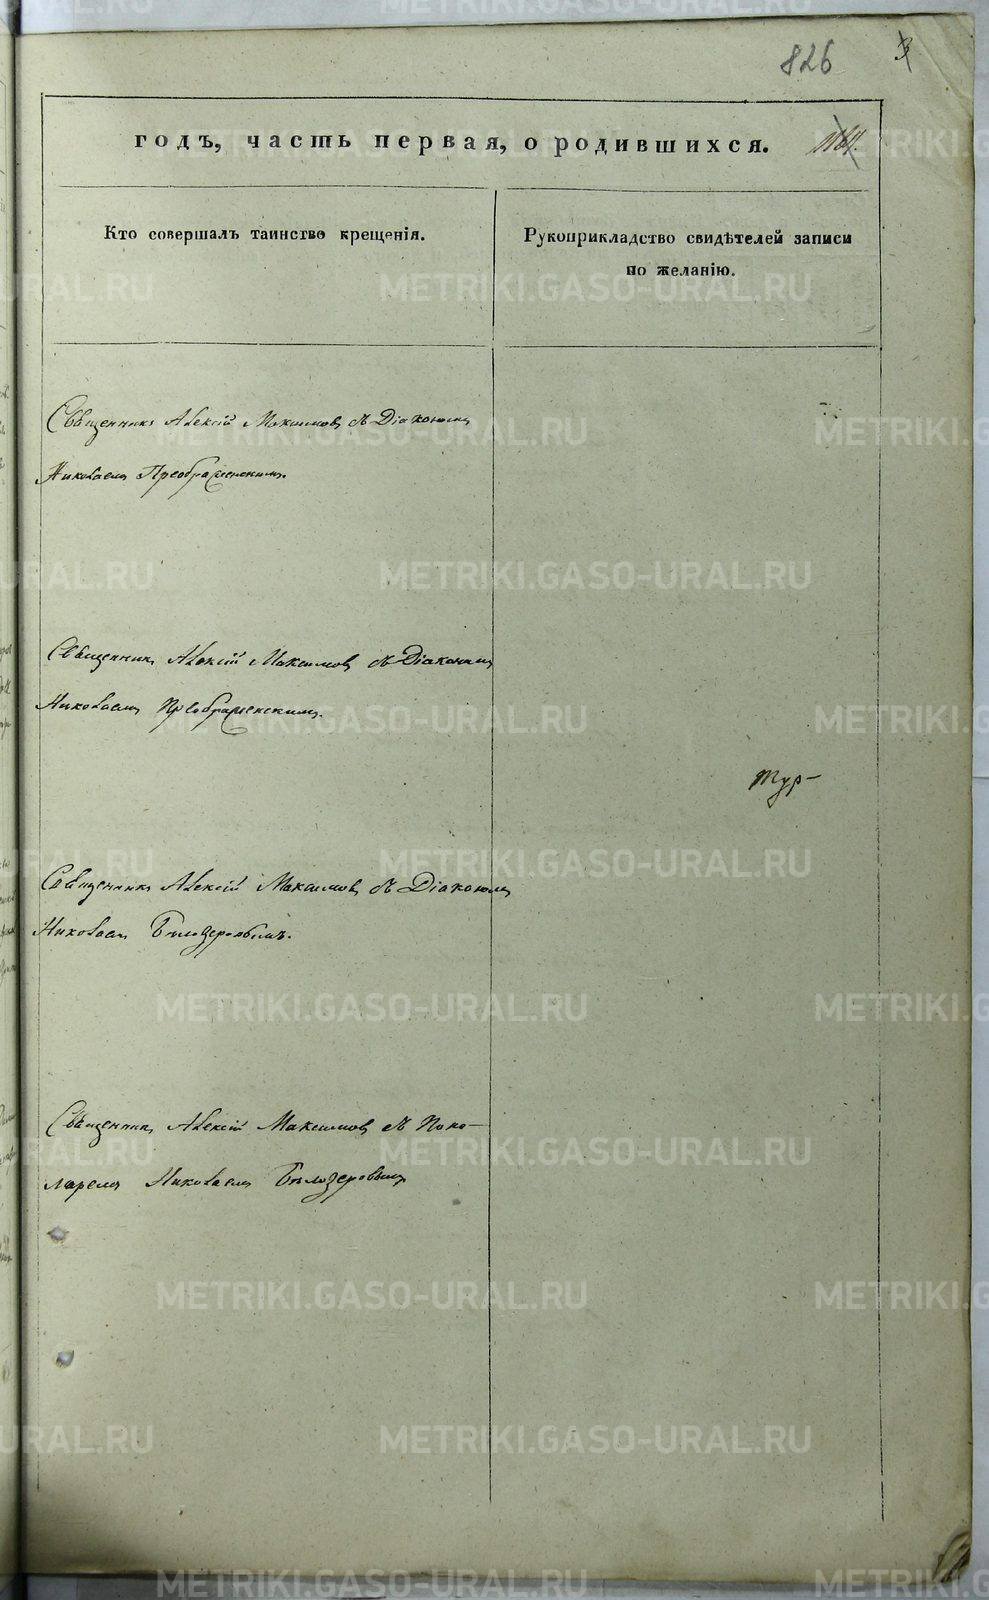 826 3
годъ, часть первая, о родившихся.
Кто совершалъ таинство крещенія.
Рукоприкладство свидѣтелей записи
по желанію.
Священникъ Алексій Максимовъ съ Діакономъ
Николаемъ Преображенскимъ.
Священникъ Алексій Максимовъ съ Діакономъ
Николаемъ Преображенскимъ.
тур-
Священникъ Алексій Максимовъ съ Діакономъ
Николаемъ Бѣлозеровымъ.
Священникъ Алексій Максимовъ съ Поно-
маремъ Николаемъ Бѣлозеровымъ
METRIKI.GASO-URAL.RU